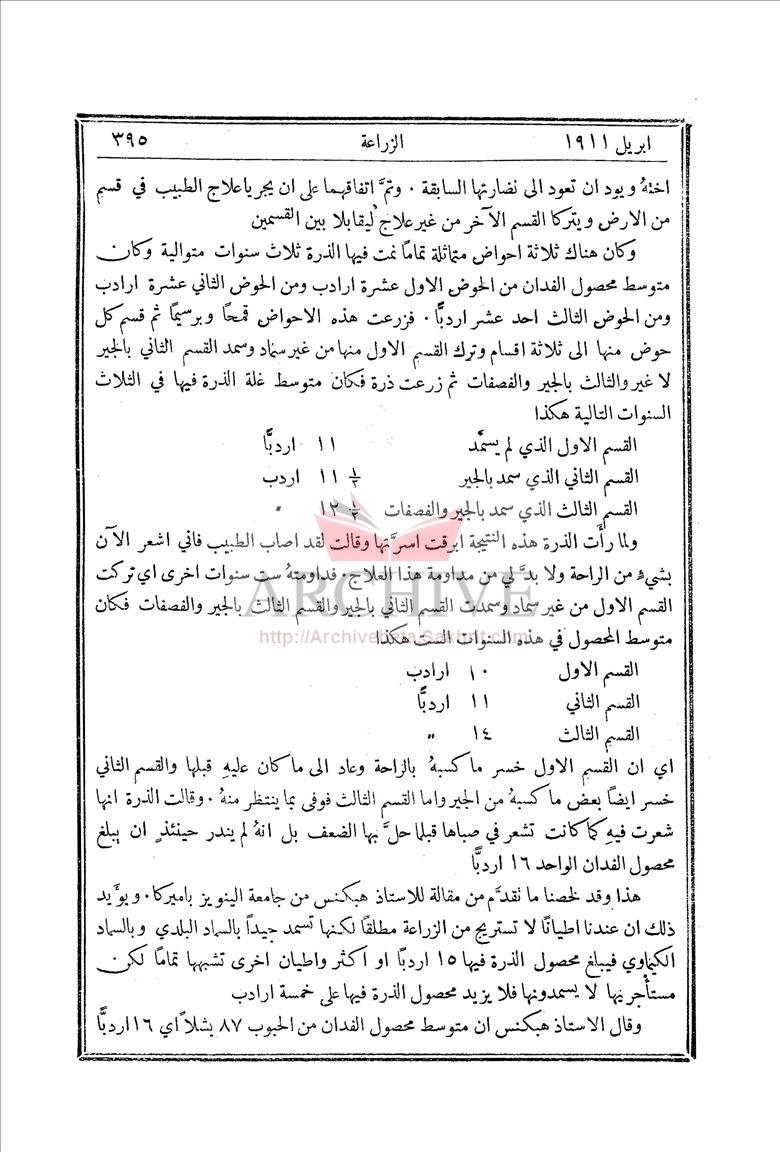 ابريل ١٩١١ الزراعة ٣٩٥
اختهُ ويود ان تعود الى نضارتها السابقة ٠ وتمَّ اتفاقهما على ان يجريا علاج الطبيب في قسم
من الارض ويتركا القسم الآخر من غير علاج ليقابلا بين القسمين
وكان هناك ثلاثة احواض متماثلة تماماً نمت فيها الذرة ثلاث سنوات متوالية وكان
متوسط محصول الفدان من الحوض الاول عشرة ارادب ومن الحوض الثاني عشرة ارادب
ومن الحوض الثالث احد عشر اردبًّا ٠ فزرعت هذه الاحواض قمحاً وبرسيماً ثم قسم كل
حوض منها الى ثلاثة اقسام وترك القسم الاول منها من غير سماد وسمد القسم الثاني بالجير
لا غير والثالث بالجير والفصفات ثم زرعت ذرة فكان متوسط غلة الذرة فيها في الثلاث
السنوات التالية هكذا
القسم الاول الذي لم يسمَّد ١١ اردبًّا
القسم الثاني الذي سمد بالجير ١١ ½ اردب
القسم الثالث الذي سمد بالجير والفصفات ١٢ ½ "
ولما رأَت الذرة هذه النتيجة ابرقت اسرَّتها وقالت لقد اصاب الطبيب فاني اشعر الآن
بشيءٍ من الراحة ولا بدَّ لي من مداومة هذا العلاج ٠ فداومتهُ ست سنوات اخرى اي تركت
القسم الاول من غير سماد وسمدت القسم الثاني بالجير والقسم الثالث بالجير والفصفات فكان
متوسط المحصول في هذه السنوات الست هكذا
القسم الاول ١٠ ارادب
القسم الثاني ١١ اردبًّا
القسم الثالث ١٤ "
اي ان القسم الاول خسر ما كسبهُ بالراحة وعاد الى ما كان عليهِ قبلها والقسم الثاني
خسر ايضاً بعض ما كسبهُ من الجير واما القسم الثالث فوفى بما ينتظر منهُ ٠ وقالت الذرة انها
شعرت فيهِ كما كانت تشعر في صباها قبلما حلَّ بها الضعف بل انهُ لم يندر حينئذٍ ان يبلغ
محصول الفدان الواحد ١٦ اردبًّا
هذا وقد لخصنا ما نقدَّم من مقالة للاستاذ هبكنس من جامعة الينويز باميركا ٠ ويوَّيد
ذلك ان عندنا اطياناً لا تستريح من الزراعة مطلقاً لكنها تسمد جيداً بالسماد البلدي وبالسماد
الكيماوي فيبلغ محصول الذرة فيها ١٥ اردبًا او اكثر واطيان اخرى تشبهها تماماً لكن
مستأْجريها لا يسمدونها فلا يزيد محصول الذرة فيها على خمسة ارادب
وقال الاستاذ هبكنس ان متوسط محصول الفدان من الحبوب ٨٧ بشلاً اي ١٦ اردبًّا
ARCHIVE
http://Archivebeta.Sakhrit.com